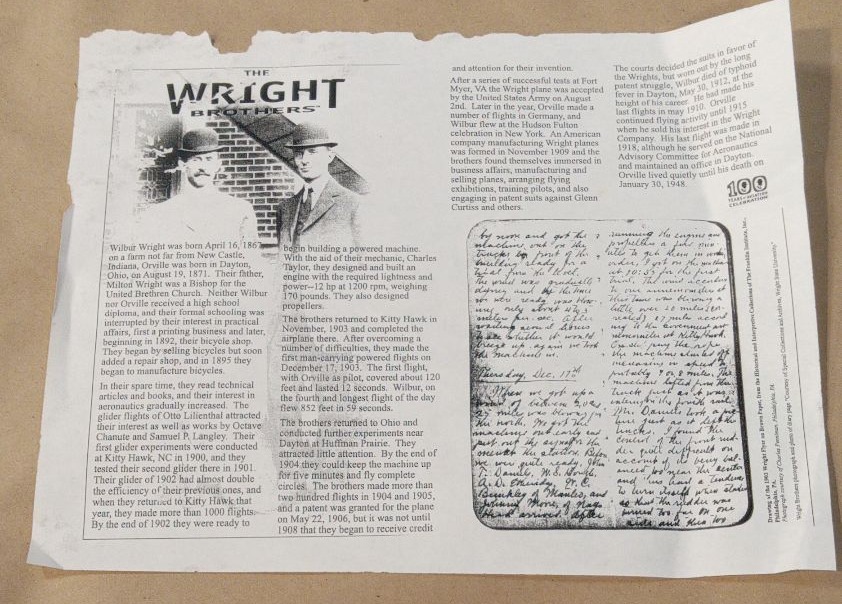 THE
WRIGHT
BROTHERS
Wilbur Wright was born April 16, 1867
on a farm not far from New Castle,
Indiana, Orville was born in Dayton,
Ohio, on August 19, 1871. Their father,
Milton Wright was a Bishop for the
United Brethren Church. Neither Wilbur
nor Orville received a high school
diploma, and their formal schooling was
interrupted by their interest in practical
affairs, first a printing business and later,
beginning in 1892, their bicycle shop.
They began by selling bicycles but soon
added a repair shop, and in 1895 they
began to manufacture bicycles.
In their spare time, they read technical
articles and books, and their interest in
aeronautics gradually increased. The
glider flights of Otto Lilienthal attracted
their interest as well as works by Octave
Chanute and Samuel P. Langley. Their
first glider experiments were conducted
at Kitty Hawk, NC in 1900, and they
tested their second glider there in 1901.
Their glider of 1902 had almost double
the efficiency of their previous ones, and
when they returned to Kitty Hawk that
year, they made more than 1000 flights.
By the end of 1902 they were ready to
begin building a powered machine.
With the aid of their mechanic, Charles
Taylor, they designed and built an
engine with the required lightness and
power--12 hp at 1200 rpm, weighing
170 pounds. They also designed
propellers.
The brothers returned to Kitty Hawk in
November, 1903 and completed the
airplane there. After overcoming a
number of difficulties, they made the
first man-carrying powered flights on
December 17, 1903. The first flight,
with Orville as pilot, covered about 120
feet and lasted 12 seconds. Wilbur, on
the fourth and longest flight of the day
flew 852 feet in 59 seconds.
The brothers returned to Ohio and
conducted further experiments near
Dayton at Huffman Prairie. They
attracted little attention. By the end of
1904 they could keep the machine up
for five minutes and fly complete
circles. The brothers made more than
two hundred flights in 1904 and 1905,
and a patent was granted for the plane
on May 22, 1906, but it was not until
1908 that they began to receive credit
and attention for their invention.
After a series of successful tests at Fort
Myer, VA the Wright plane was accepted
by the United States Army on August
2nd. Later in the year, Orville made a
number of flights in Germany, and
Wilbur flew at the Hudson Fulton
celebration in New York. An American
company manufacturing Wright planes
was formed in November 1909 and the
brothers found themselves immersed in
business affairs, manufacturing and
selling planes, arranging flying
exhibitions, training pilots, and also
engaging in patent suits against Glenn
Curtiss and others.
The courts decided the suits in favor of
the Wrights, but worn out by the long
patent struggle, Wilbur died of typhoid
fever in Dayton, May 30, 1912, at the
height of his career. He had made his
last flights in may 1910. Orville
continued flying activity until 1915
when he sold his interest in the Wright
Company. His last flight was made in
1918, although he served on the National
Advisory Committee for Aeronautics
and maintained an office in Dayton.
Orville lived quietly until his death on
January 30, 1948.
100
CELEBRATION
by noon and got the
machine out on the
building ready for a
Thursday, Dec. 17th
When we got up a
wind of between 20 and
25 miles was blowing from
the north. We got the
machine out early and
put out the signal for the
men at the station. Before
we were quite ready, John
T. Daniels, W. S. Dough,
A. D. Etheridge, W. C.
Brinkley of Manteo, and
Johnny Moore, of Nags
Head arrived. After
running the engine and
propellers a few min-
utes to get them in working
order, I got on the machine
at 10:35 for the first
trial. The wind according
Mr. Daniels took a pic-
ture just as it left the
tracks. I found the
control of the front rud-
der quite difficult on
account of its being bal-
anced too near the center
and thus had a tendency
to turn itself when started
so that the rudder was
turned too far on one
side and then too
Drawing of the 1903 Wright Flyer on Brown Paper, from the Historical and Interpretive Collections of The Franklin Institute, Inc.,
Philadelphia, PA.
Wright Brothers photograph and photo of diary page "Courtesy of Special Collections and Archives, Wright State University"